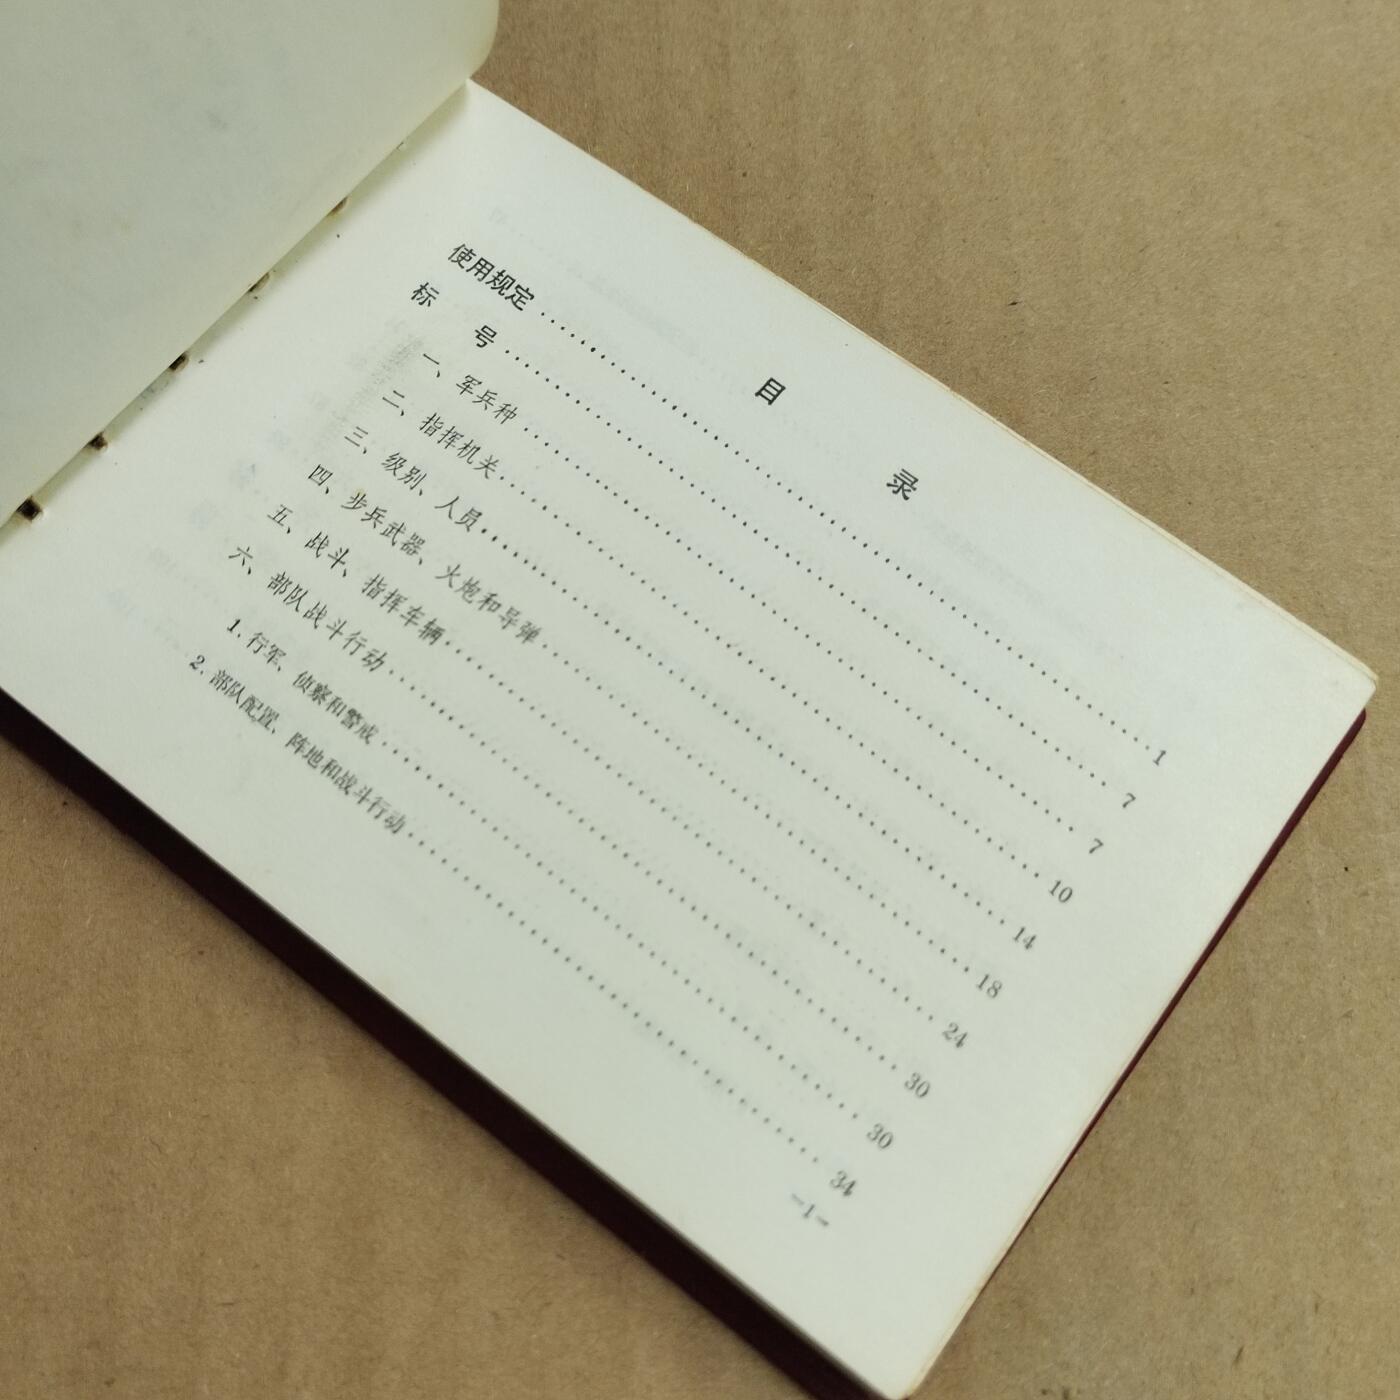 目 录
使用规定……………………1
标 号……………………7
一、军兵种……………………7
二、指挥机关……………………10
三、级别、人员……………………14
四、步兵武器、火炮和导弹……………………18
五、战斗、指挥车辆……………………24
六、部队战斗行动……………………30
1. 行军、侦察和警戒……………………30
2. 部队配置、阵地和战斗行动……………………34
-1-